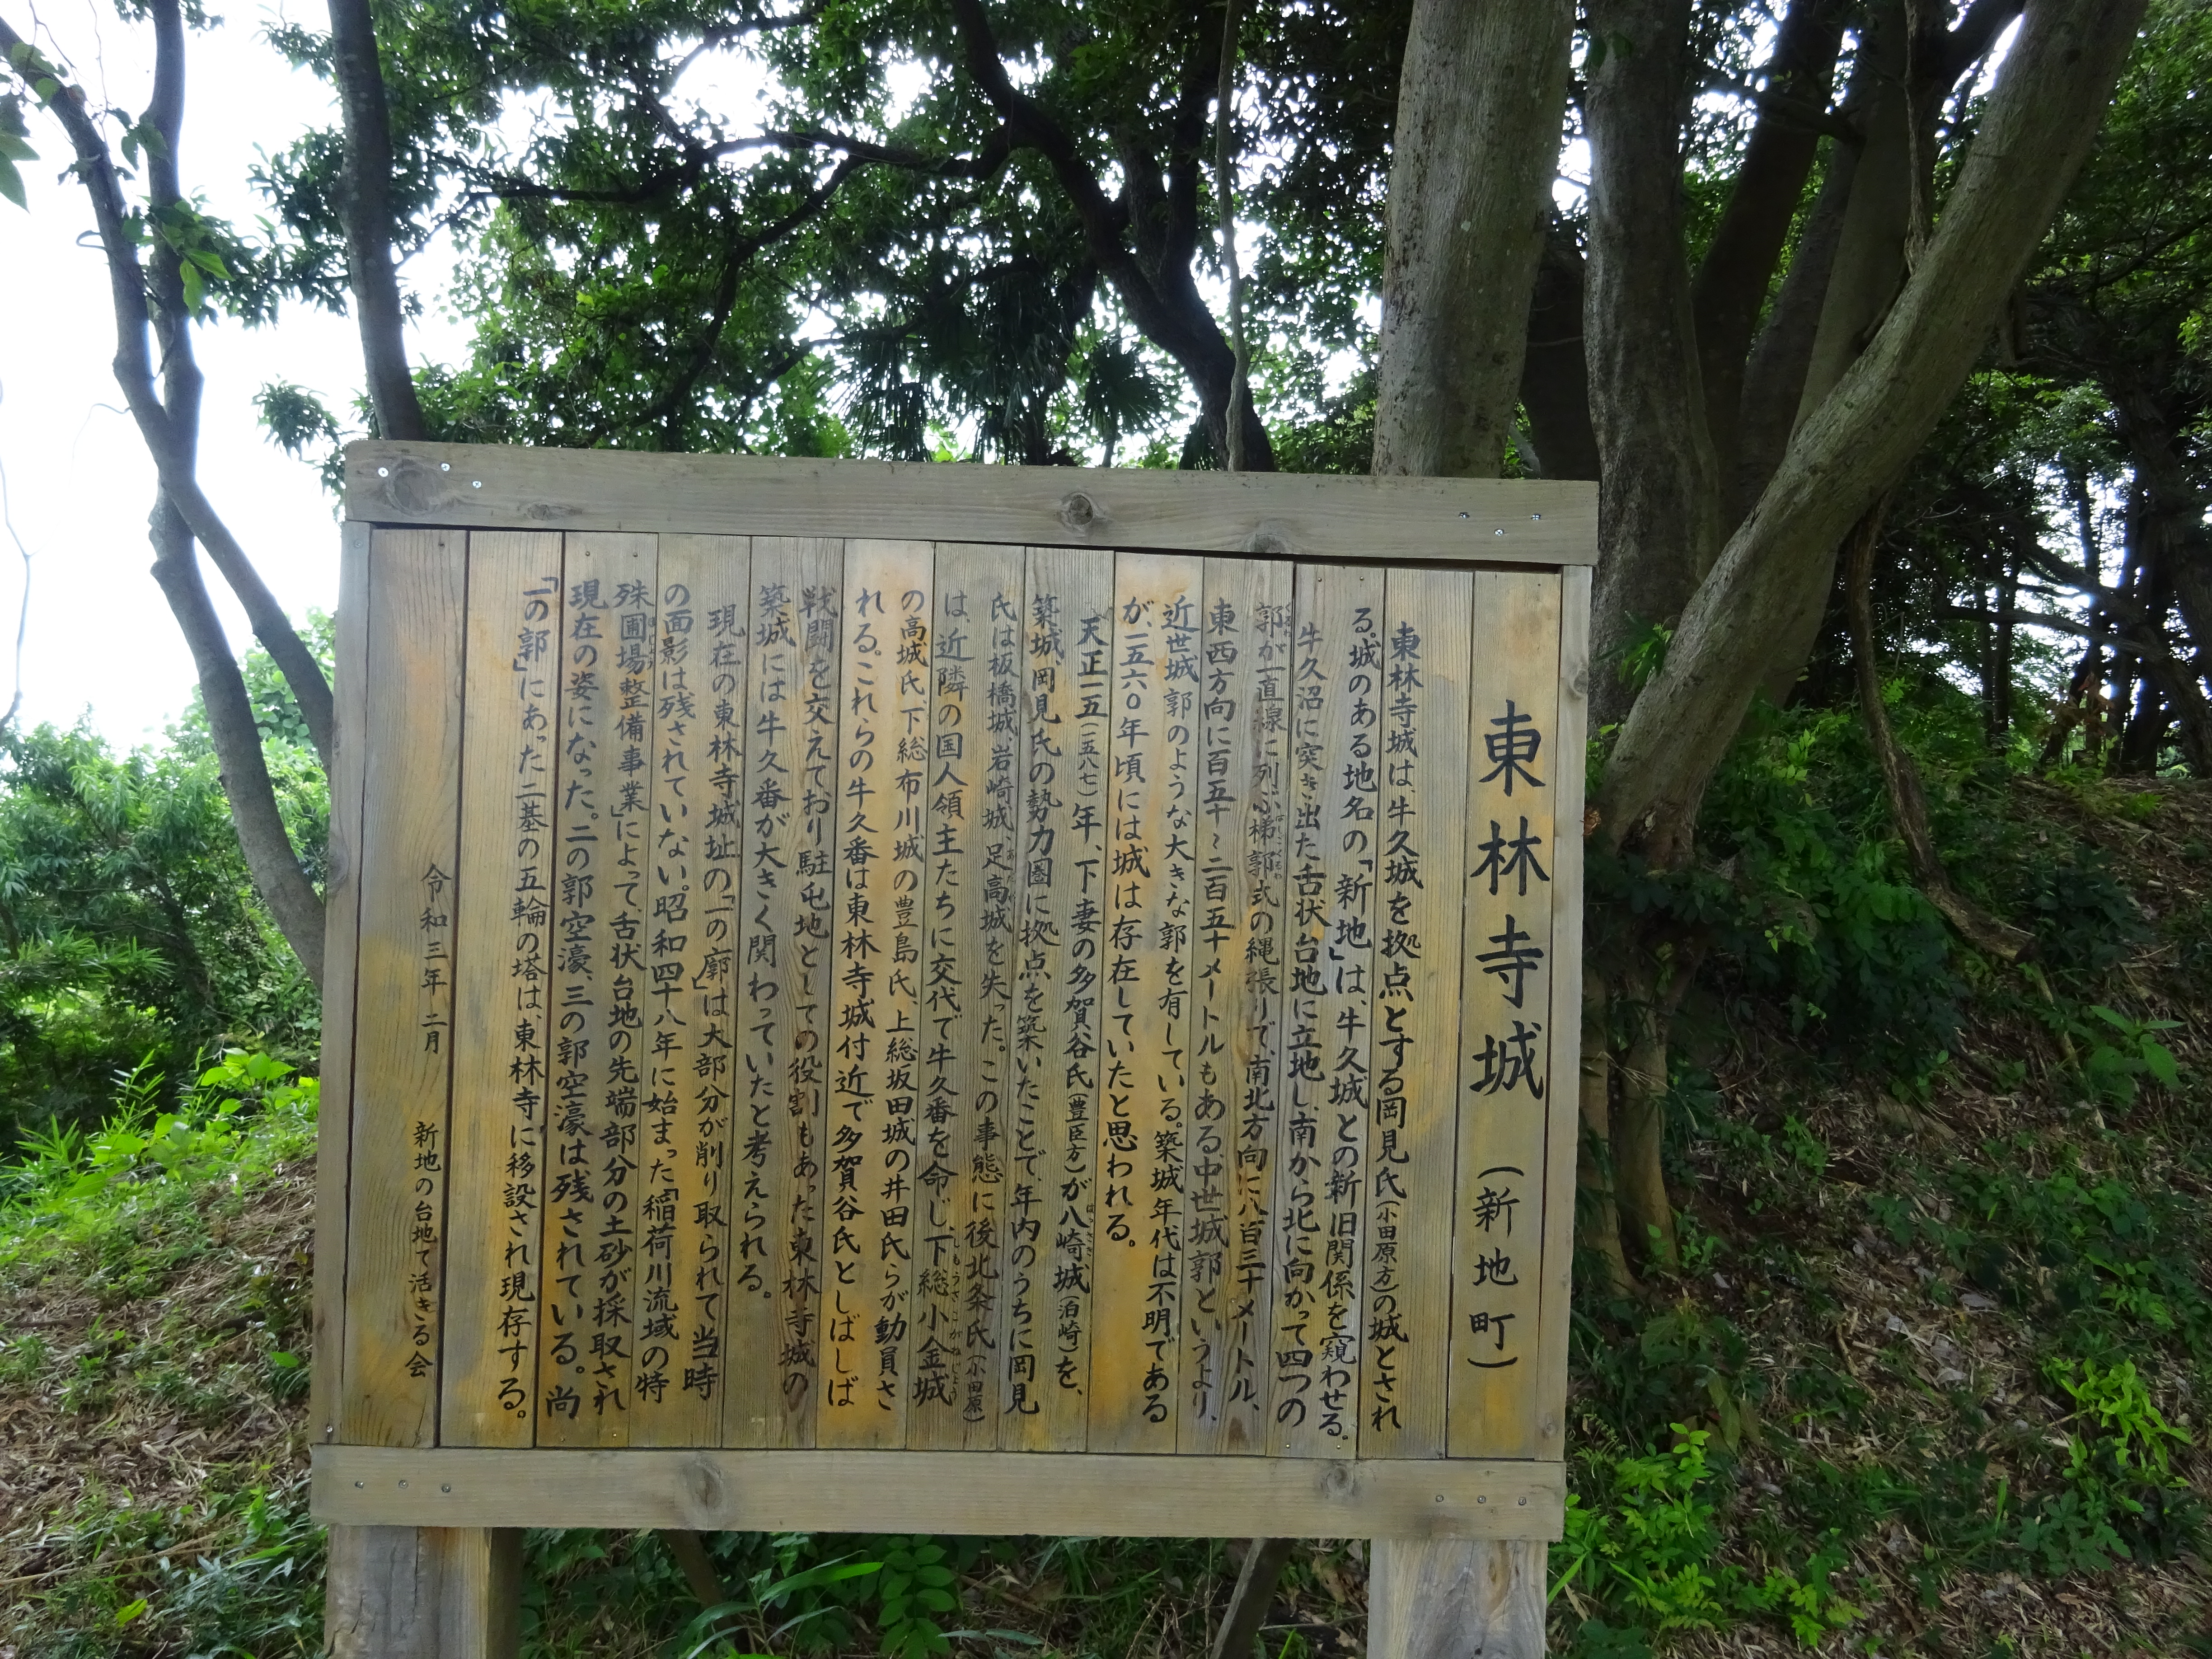 東林寺城 （新地町）
東林寺城は、牛久城を拠点とする岡見氏(小田原方)の城とされ
る。城のある地名の「新地」は、牛久城との新旧関係を窺わせる。
牛久沼に突き出た舌状台地に立地し、南から北に向かって四つの
郭が一直線に列ぶ梯郭式の縄張りで、南北方向に八百三十メートル、
東西方向に百五十～二百五十メートルもある、中世城郭というより、
近世城郭のような大きな郭を有している。築城年代は不明である
が、一五六〇年頃には城は存在していたと思われる。
天正一五(一五八七)年、下妻の多賀谷氏(豊臣方)が八崎城(泊崎)を、
築城、岡見氏の勢力圏に拠点を築いたことで、年内のうちに岡見
氏は板橋城、岩崎城、足高城を失った。この事態に後北条氏(小田原)
は、近隣の国人領主たちに交代で牛久番を命じ、下総小金城
の高城氏、下総布川城の豊島氏、上総坂田城の井田氏らが動員さ
れる。これらの牛久番は東林寺城付近で多賀谷氏としばしば
戦闘を交えており駐屯地としての役割もあった東林寺城の
築城には牛久番が大きく関わっていたと考えられる。
現在の東林寺城址の「一の廓」は大部分が削り取られて当時
の面影は残されていない。昭和四十八年に始まった「稲荷川流域の特
殊圃場整備事業」によって、舌状台地の先端部分の土砂が採取され
現在の姿になった。二の郭空濠、三の郭空濠は残されている。尚
「一の郭」にあった二基の五輪の塔は、東林寺に移設され現存する。
令和三年 二月 新地の台地で活きる会